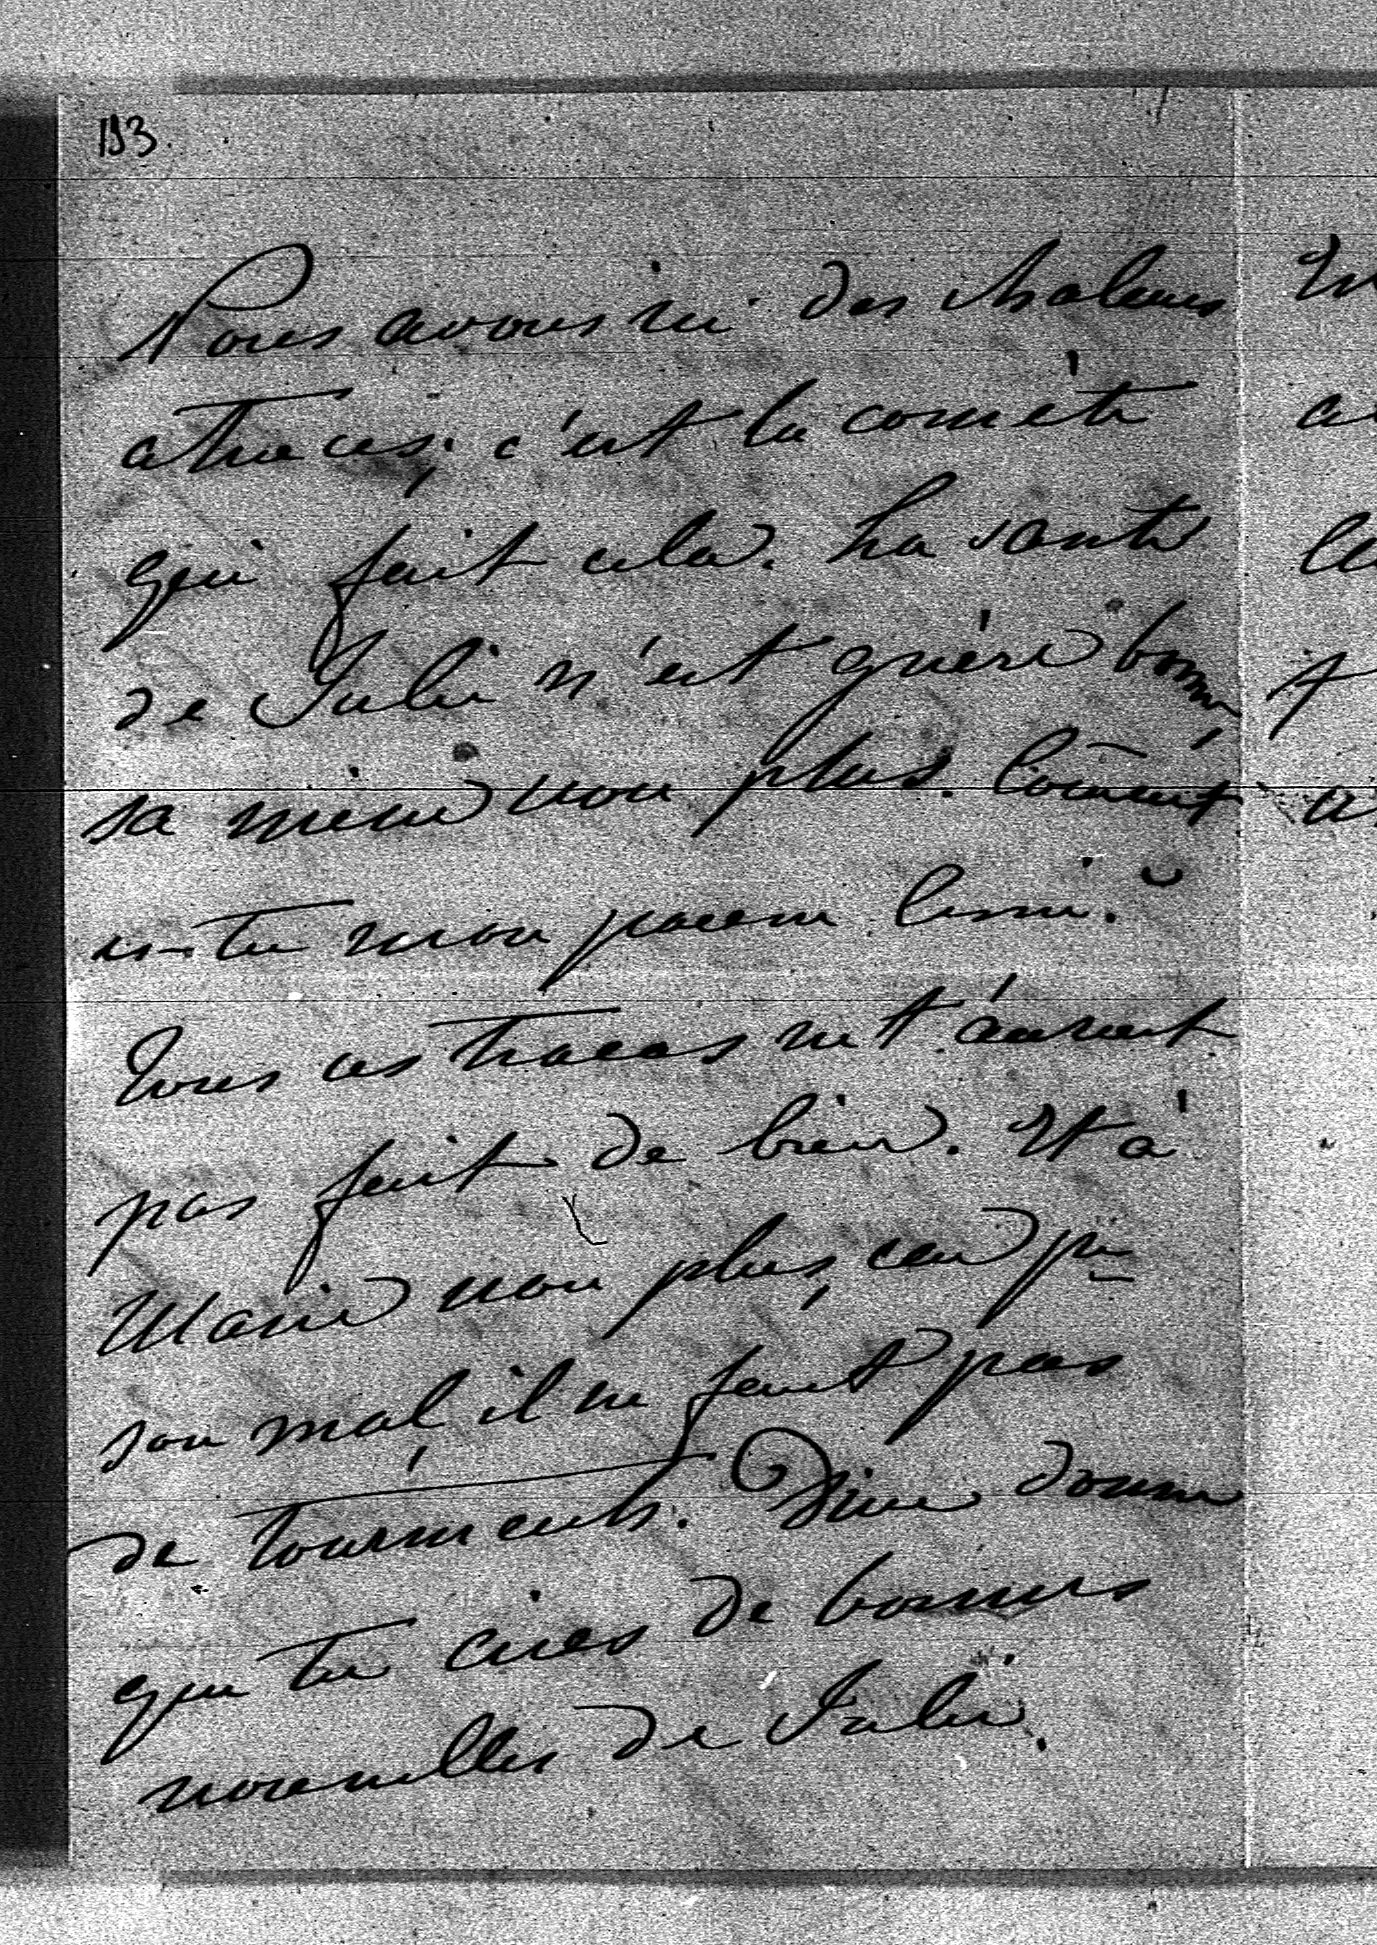 193.
Nous avons ici des chaleurs
atroces; c'est la comète
qui fait cela. La santé
de Julie n'est guère bonne,
sa mère non plus. Coment
es-tu mon pauvre
Tous ces tracas ne t'auront
pas fait de bien. Et à
Marie non plus, car pr
son mal il ne faut pas
de tourments. Dieu donne
que tu aies de bonnes
nouvelles de Julie.